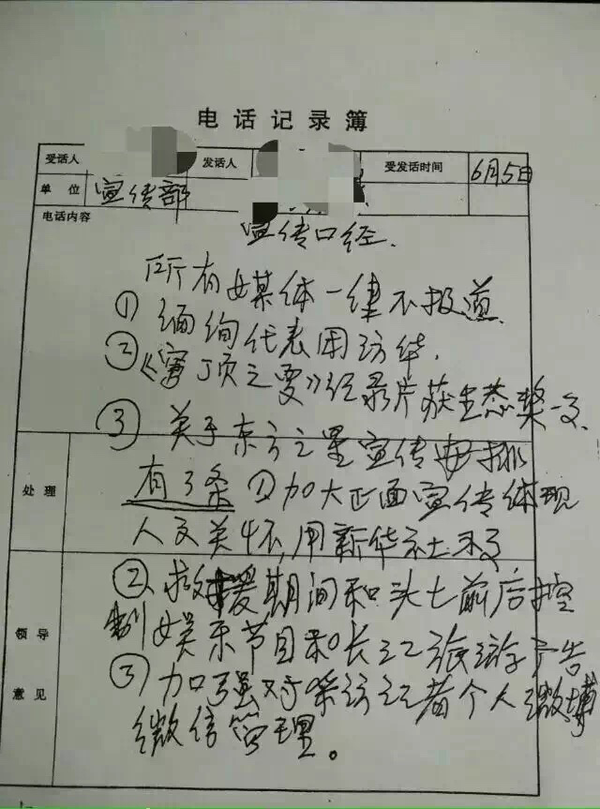 电话记录簿
受话人 发话人 受发话时间 6月5日
单位 宣传部
电话内容
宣传口经.
所有媒体一律不报道
① 缅甸代表团访华.
② 《穹顶之 》纪录片获生态奖一文.
③ 关于东方之星宣传安排
处理
有3条 ①加大正面宣传体现
人文关怀,用新华社
②救援期间和头七前后控
制娱乐节目和长江旅游广告
领导
意见
③加强对采访记者个人微博
微信管理。